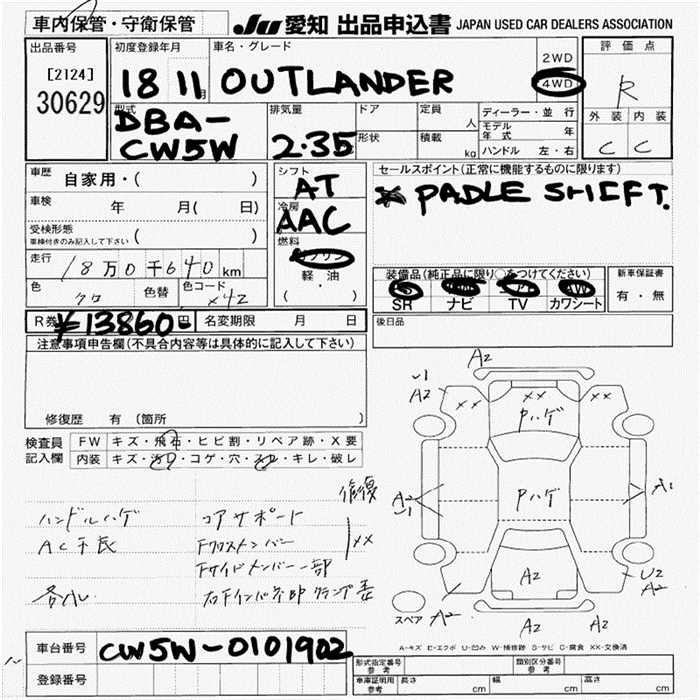 車内保管・守衛保管
JU 愛知 出品申込書 JAPAN USED CAR DEALERS ASSOCIATION
出品番号
[2124]
30629
初度登録年月
18 11 月
車名・グレード
OUTLANDER
2WD
4WD
評価点
R
外装 内装
C C
型式
DBA-
CW5W
排気量
2.35
ドア
形状
定員 人
積載 kg
ディーラー・並行
モデル年式 年
ハンドル 左・右
車歴 自家用・( )
車検 年 月( 日)
受検形態
車検付きのみ記入して下さい ( )
走行 18万0千640km
色 クロ 色替
色コード X42
シフト
AT
冷房
AAC
燃料
ガソリン
軽・油
( )
セールスポイント(正常に機能するものに限ります)
PADLE SHIFT.
装備品(純正品に限り○をつけてください)
SR ナビ TV カワシート
新車保証書
有・無
R券 ¥13860- 円
名変期限 月 日
後日品
注意事項申告欄(不具合内容等は具体的に記入して下さい)
修復歴 有(箇所 )
検査員
記入欄
FW キズ・飛石・ヒビ割・リペア跡・X要
内装 キズ・汚れ・コゲ・穴・スレ・キレ・破レ
修復
ハンドルハゲ
コアサポート
AC不良
Fクロスメンバー XX
Fサイドメンバー一部
A2
U1
A2
XX
XX
XX
Pハゲ
A2
U1
Pハゲ
A1
A2
A2
U2
A2
A2
A2
スペア
A-キズ E-エクボ U-凹み W-補修跡 S-サビ C-腐食 XX-交換済
車台番号 CW5W-0101902
登録番号
型式指定番号
参考
類別区分番号
参考
車庫証明用
参考
長さ cm
幅 cm
高さ cm